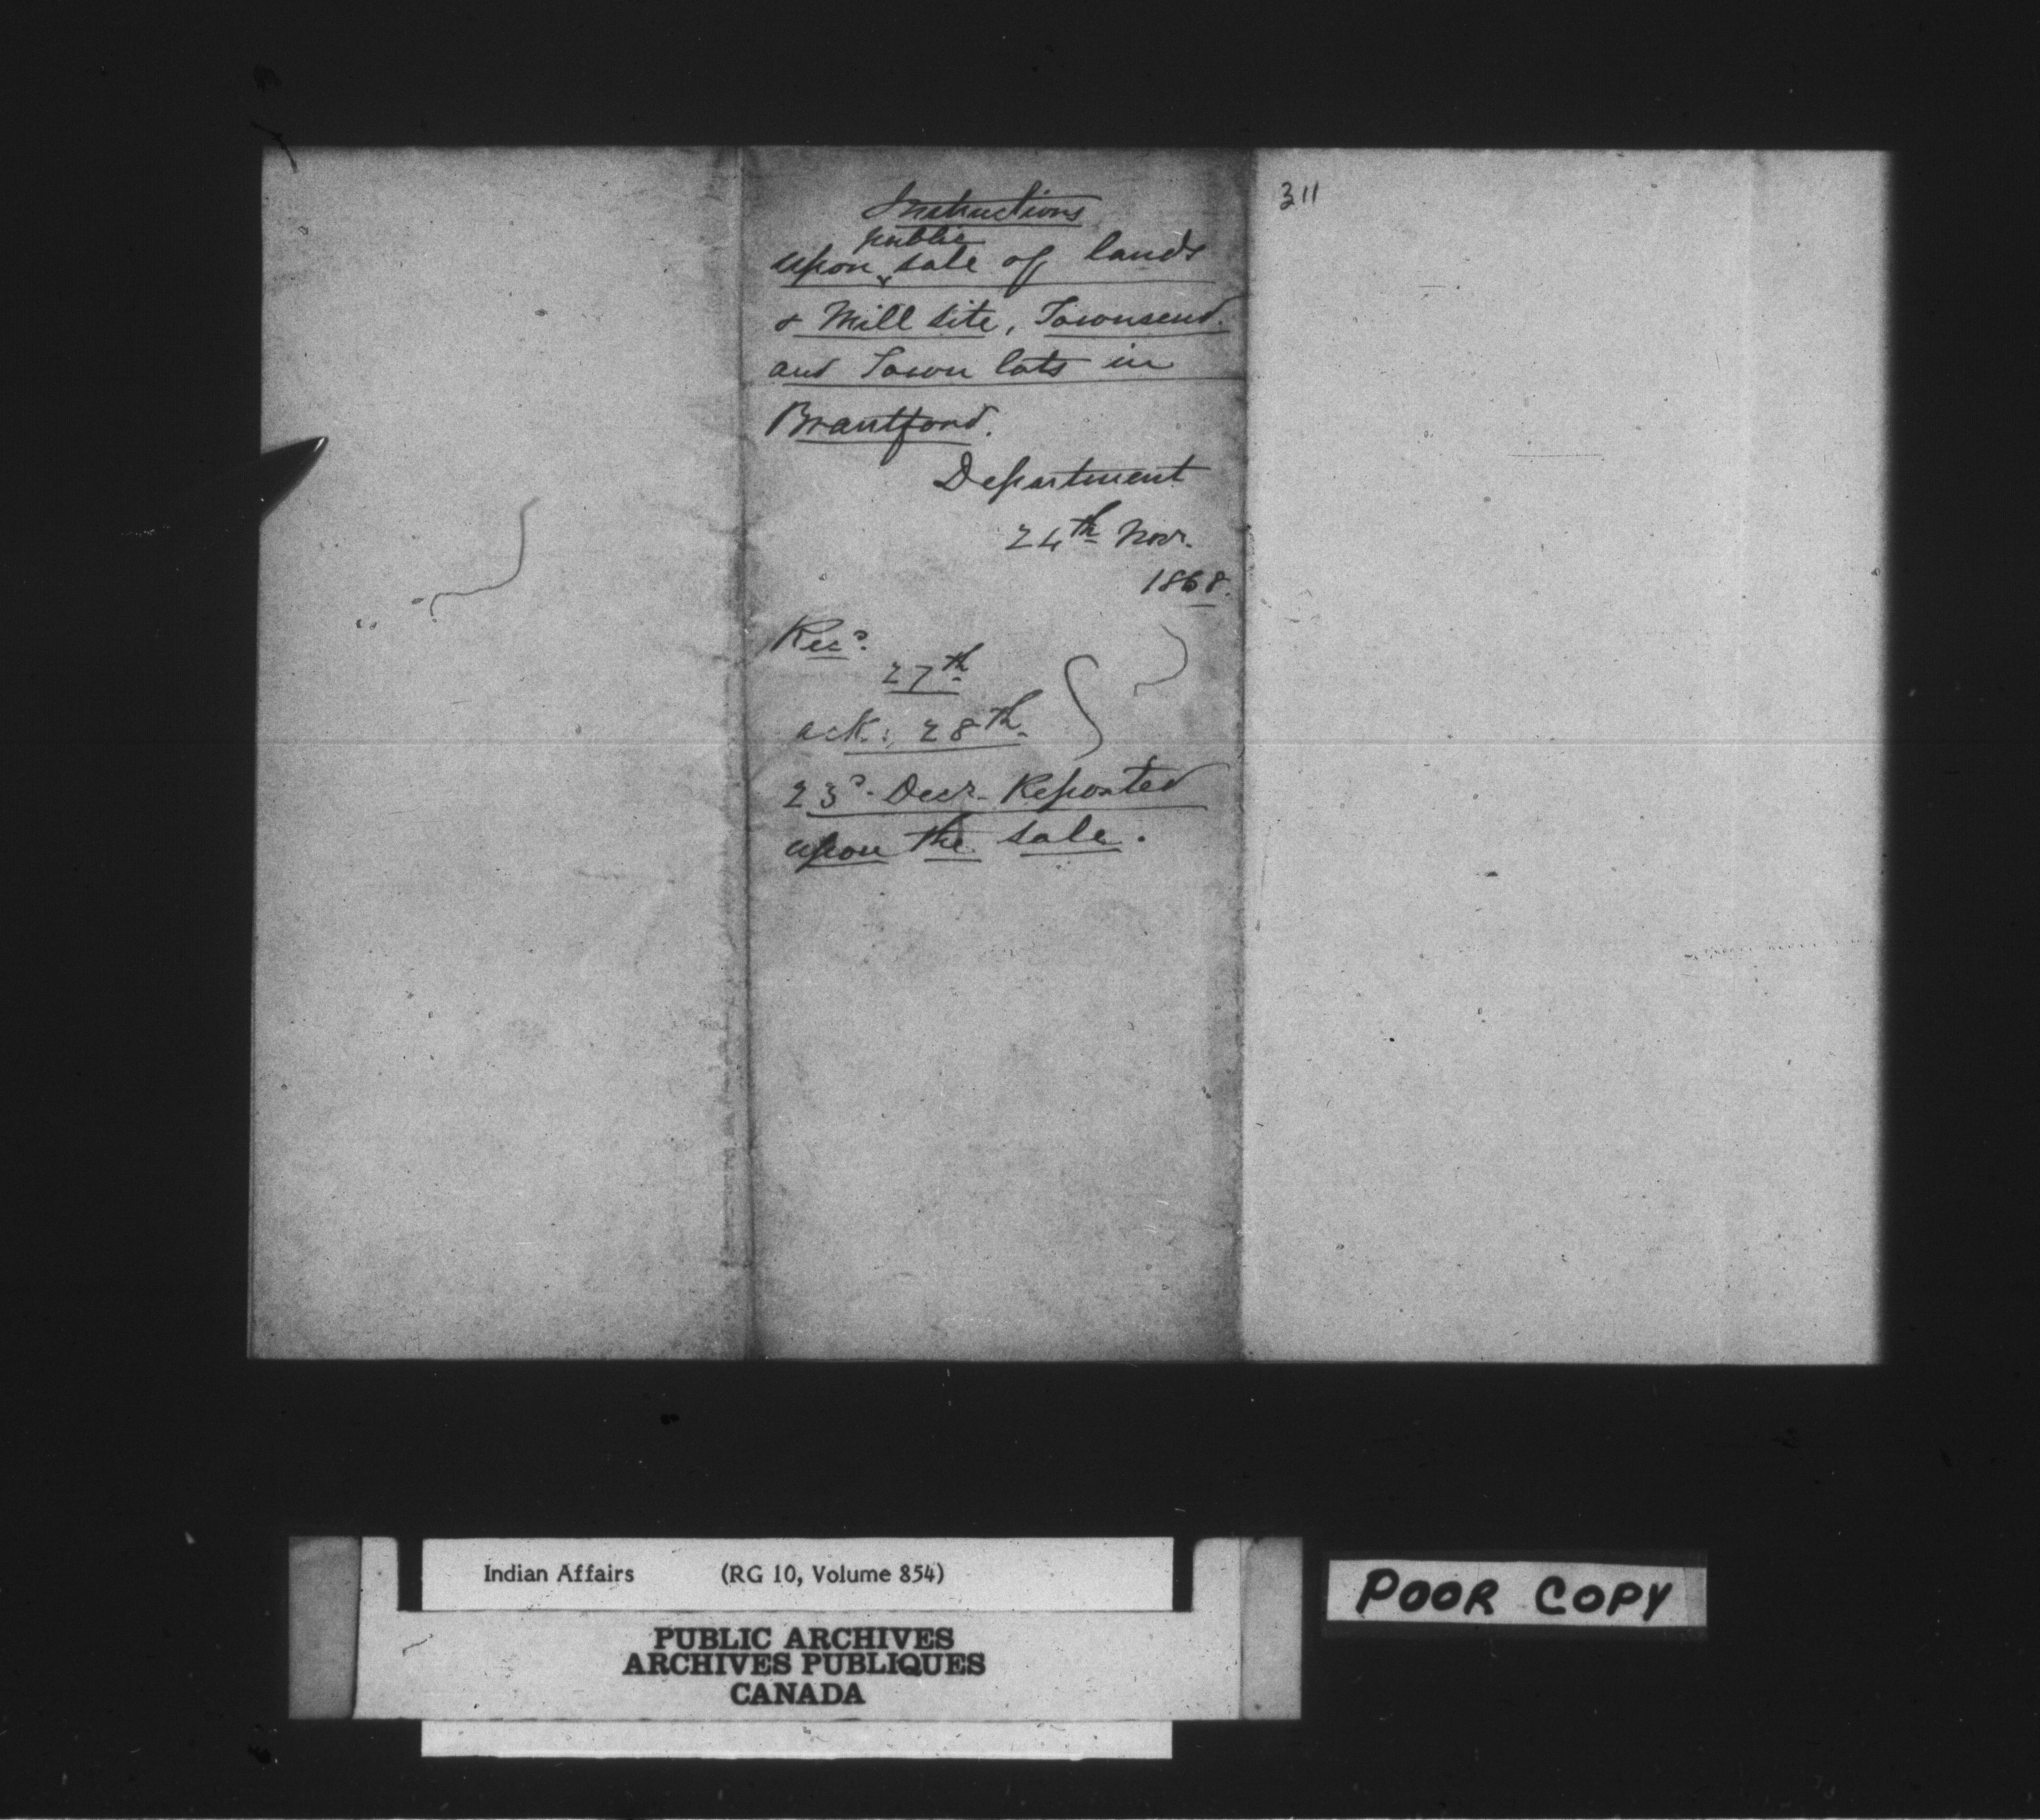 Instructions
public
upon ‸ sale of lands
& Mill site, Townsend.
and Town lots in
Brantford.
Department
24th Novr.
1868.
Recd.
27th
ack: 28th
23d. Decr. Reported
upon the sale.
311
Indian Affairs (RG 10, Volume 854)
PUBLIC ARCHIVES
ARCHIVES PUBLIQUES
CANADA
POOR COPY